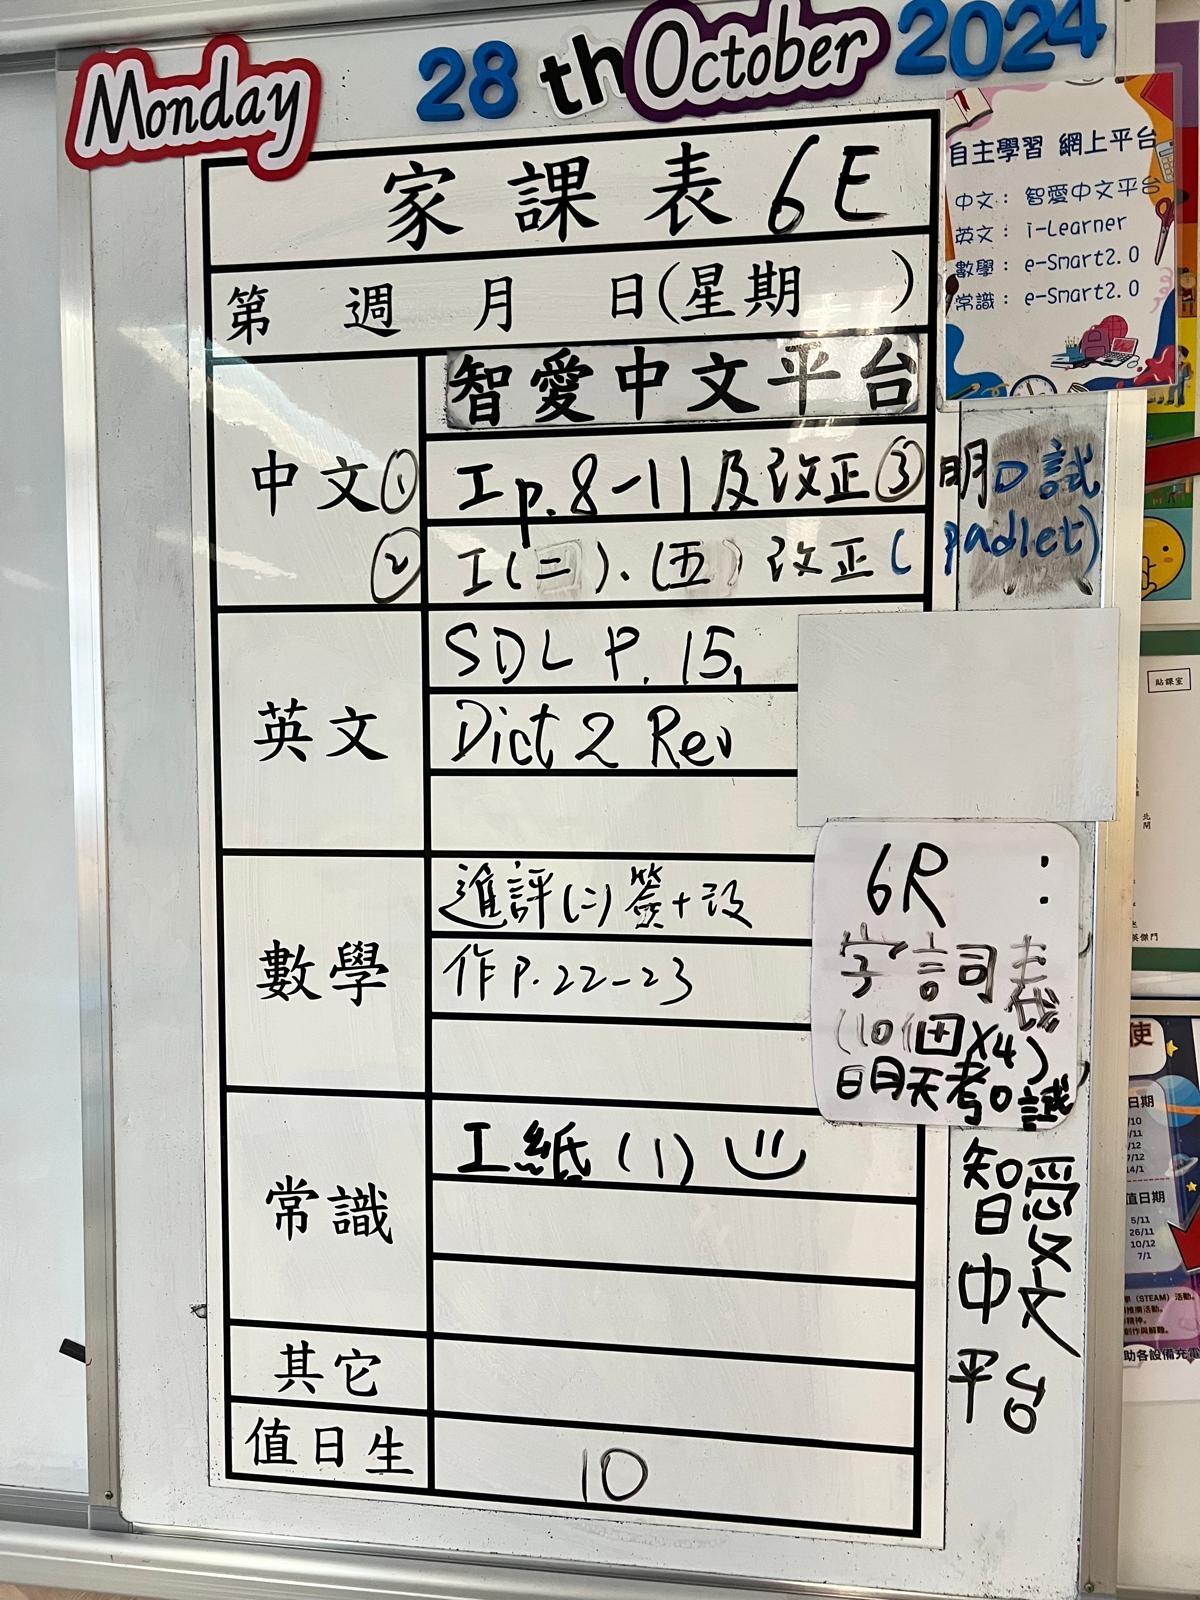 Monday 28th October 2024
家課表 6E
第 週 月 日(星期 )
自主學習 網上平台
中文：智愛中文平台
英文：i-Learner
數學：e-Smart2.0
常識：e-Smart2.0
智愛中文平台
中文① 工p.8-11及改正③明口試
② 工(二)、(五) 改正(padlet)
英文
SDL P. 15,
Dict 2 Rev
貼課室
數學
進評(二)簽+改
作P.22-23
6R：
字詞表
(10個X4)
明天考口試
常識
工紙(1)
智愛
中文
平台
其它
值日生
10
日期
/10
/11
/12
7/12
14/1
值日期
5/11
26/11
10/12
7/1
(STEAM)活動。
助各設備充電